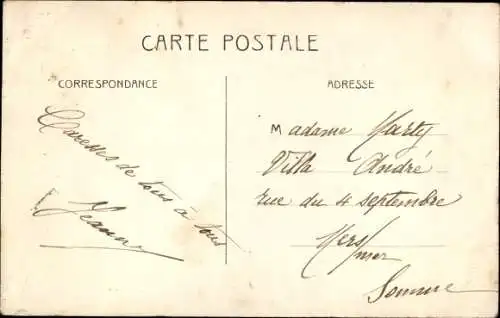 CARTE POSTALE
CORRESPONDANCE
Caresses de tous à tous
Jeanne
ADRESSE
Madame Marty
Villa André
rue du 4 septembre
Mers/mer
Somme